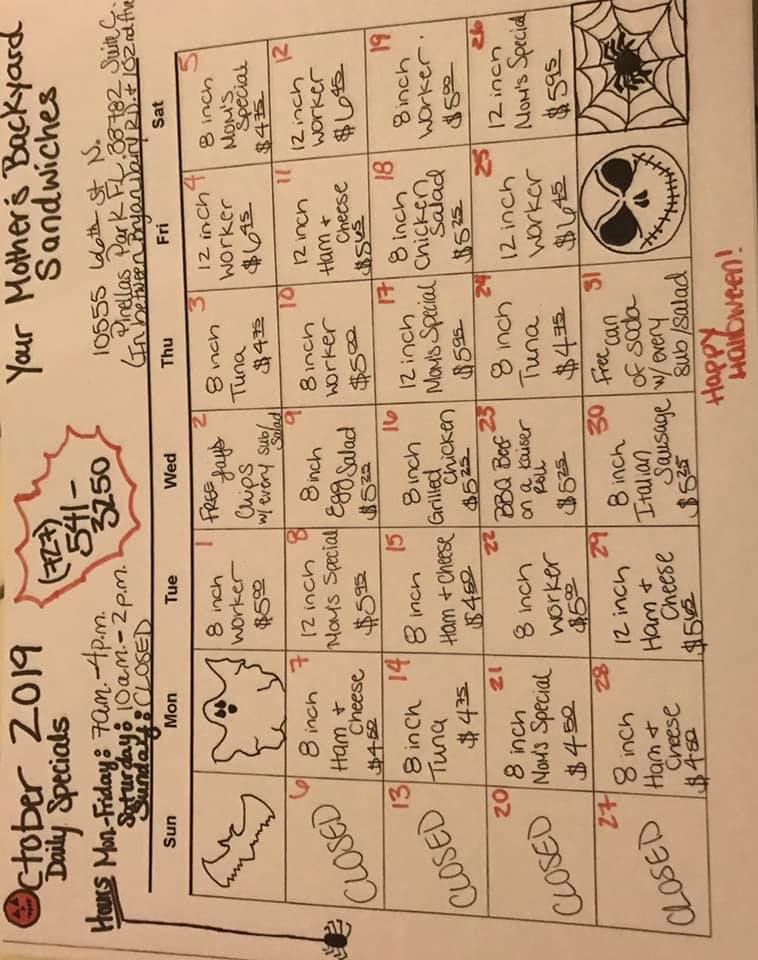 October 2019
Daily Specials
(727)
541-
3250
Your Mother's Backyard
Sandwiches
Hours Mon-Friday: 7am.-4p.m.
Saturday: 10a.m.-2p.m.
Sunday: CLOSED
10555 66th St N.
Pinellas Park FL 33782 Suite C.
(In between Bryan Dairy RD. + 102nd Ave
Sun Mon Tue Wed Thu Fri Sat
1
8 inch
Worker
$5.00
2
FREE Jays
Chips
w/every Sub/
Salad
3
8 inch
Tuna
$4.75
4
12 inch
Worker
$6.45
5
8 inch
Mom's
Special
$4.75
6
CLOSED
7
8 inch
Ham +
Cheese
$4.50
8
12 inch
Mom's Special
$5.95
9
8 inch
Egg Salad
$5.25
10
8 inch
Worker
$5.00
11
12 inch
Ham +
Cheese
$5.65
12
12 inch
Worker
$6.45
13
CLOSED
14
8 inch
Tuna
$4.75
15
8 inch
Ham + Cheese
$4.50
16
8 inch
Grilled
Chicken
$5.25
17
12 inch
Mom's Special
$5.95
18
8 inch
Chicken
Salad
$5.25
19
8 inch
Worker.
$5.00
20
CLOSED
21
8 inch
Mom's Special
$4.50
22
8 inch
Worker
$5.00
23
BBQ Beef
on a Kaiser
Roll
$5.25
24
8 inch
Tuna
$4.75
25
12 inch
Worker
$6.45
26
12 inch
Mom's Special
$5.95
27
CLOSED
28
8 inch
Ham +
Cheese
$4.50
29
12 inch
Ham +
Cheese
$5.65
30
8 inch
Italian
Sausage
$5.25
31
Free can
of soda
w/every
sub/salad
Happy
Halloween!